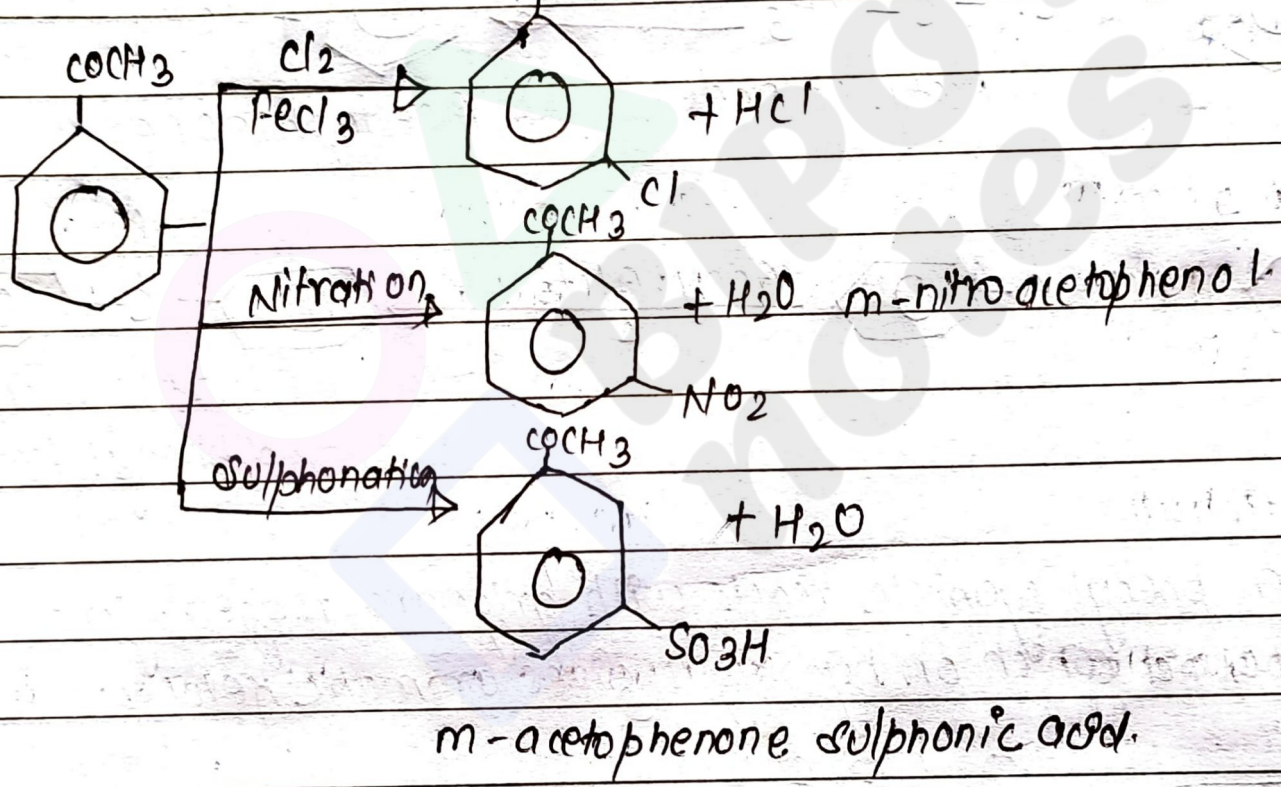 COCH3
Cl2
FeCl3
+ HCl
Cl
COCH3
Nitration
+ H2O m-nitro acetophenol.
NO2
COCH3
Sulphonation
+ H2O
SO3H
m-acetophenone sulphonic acid.
notes